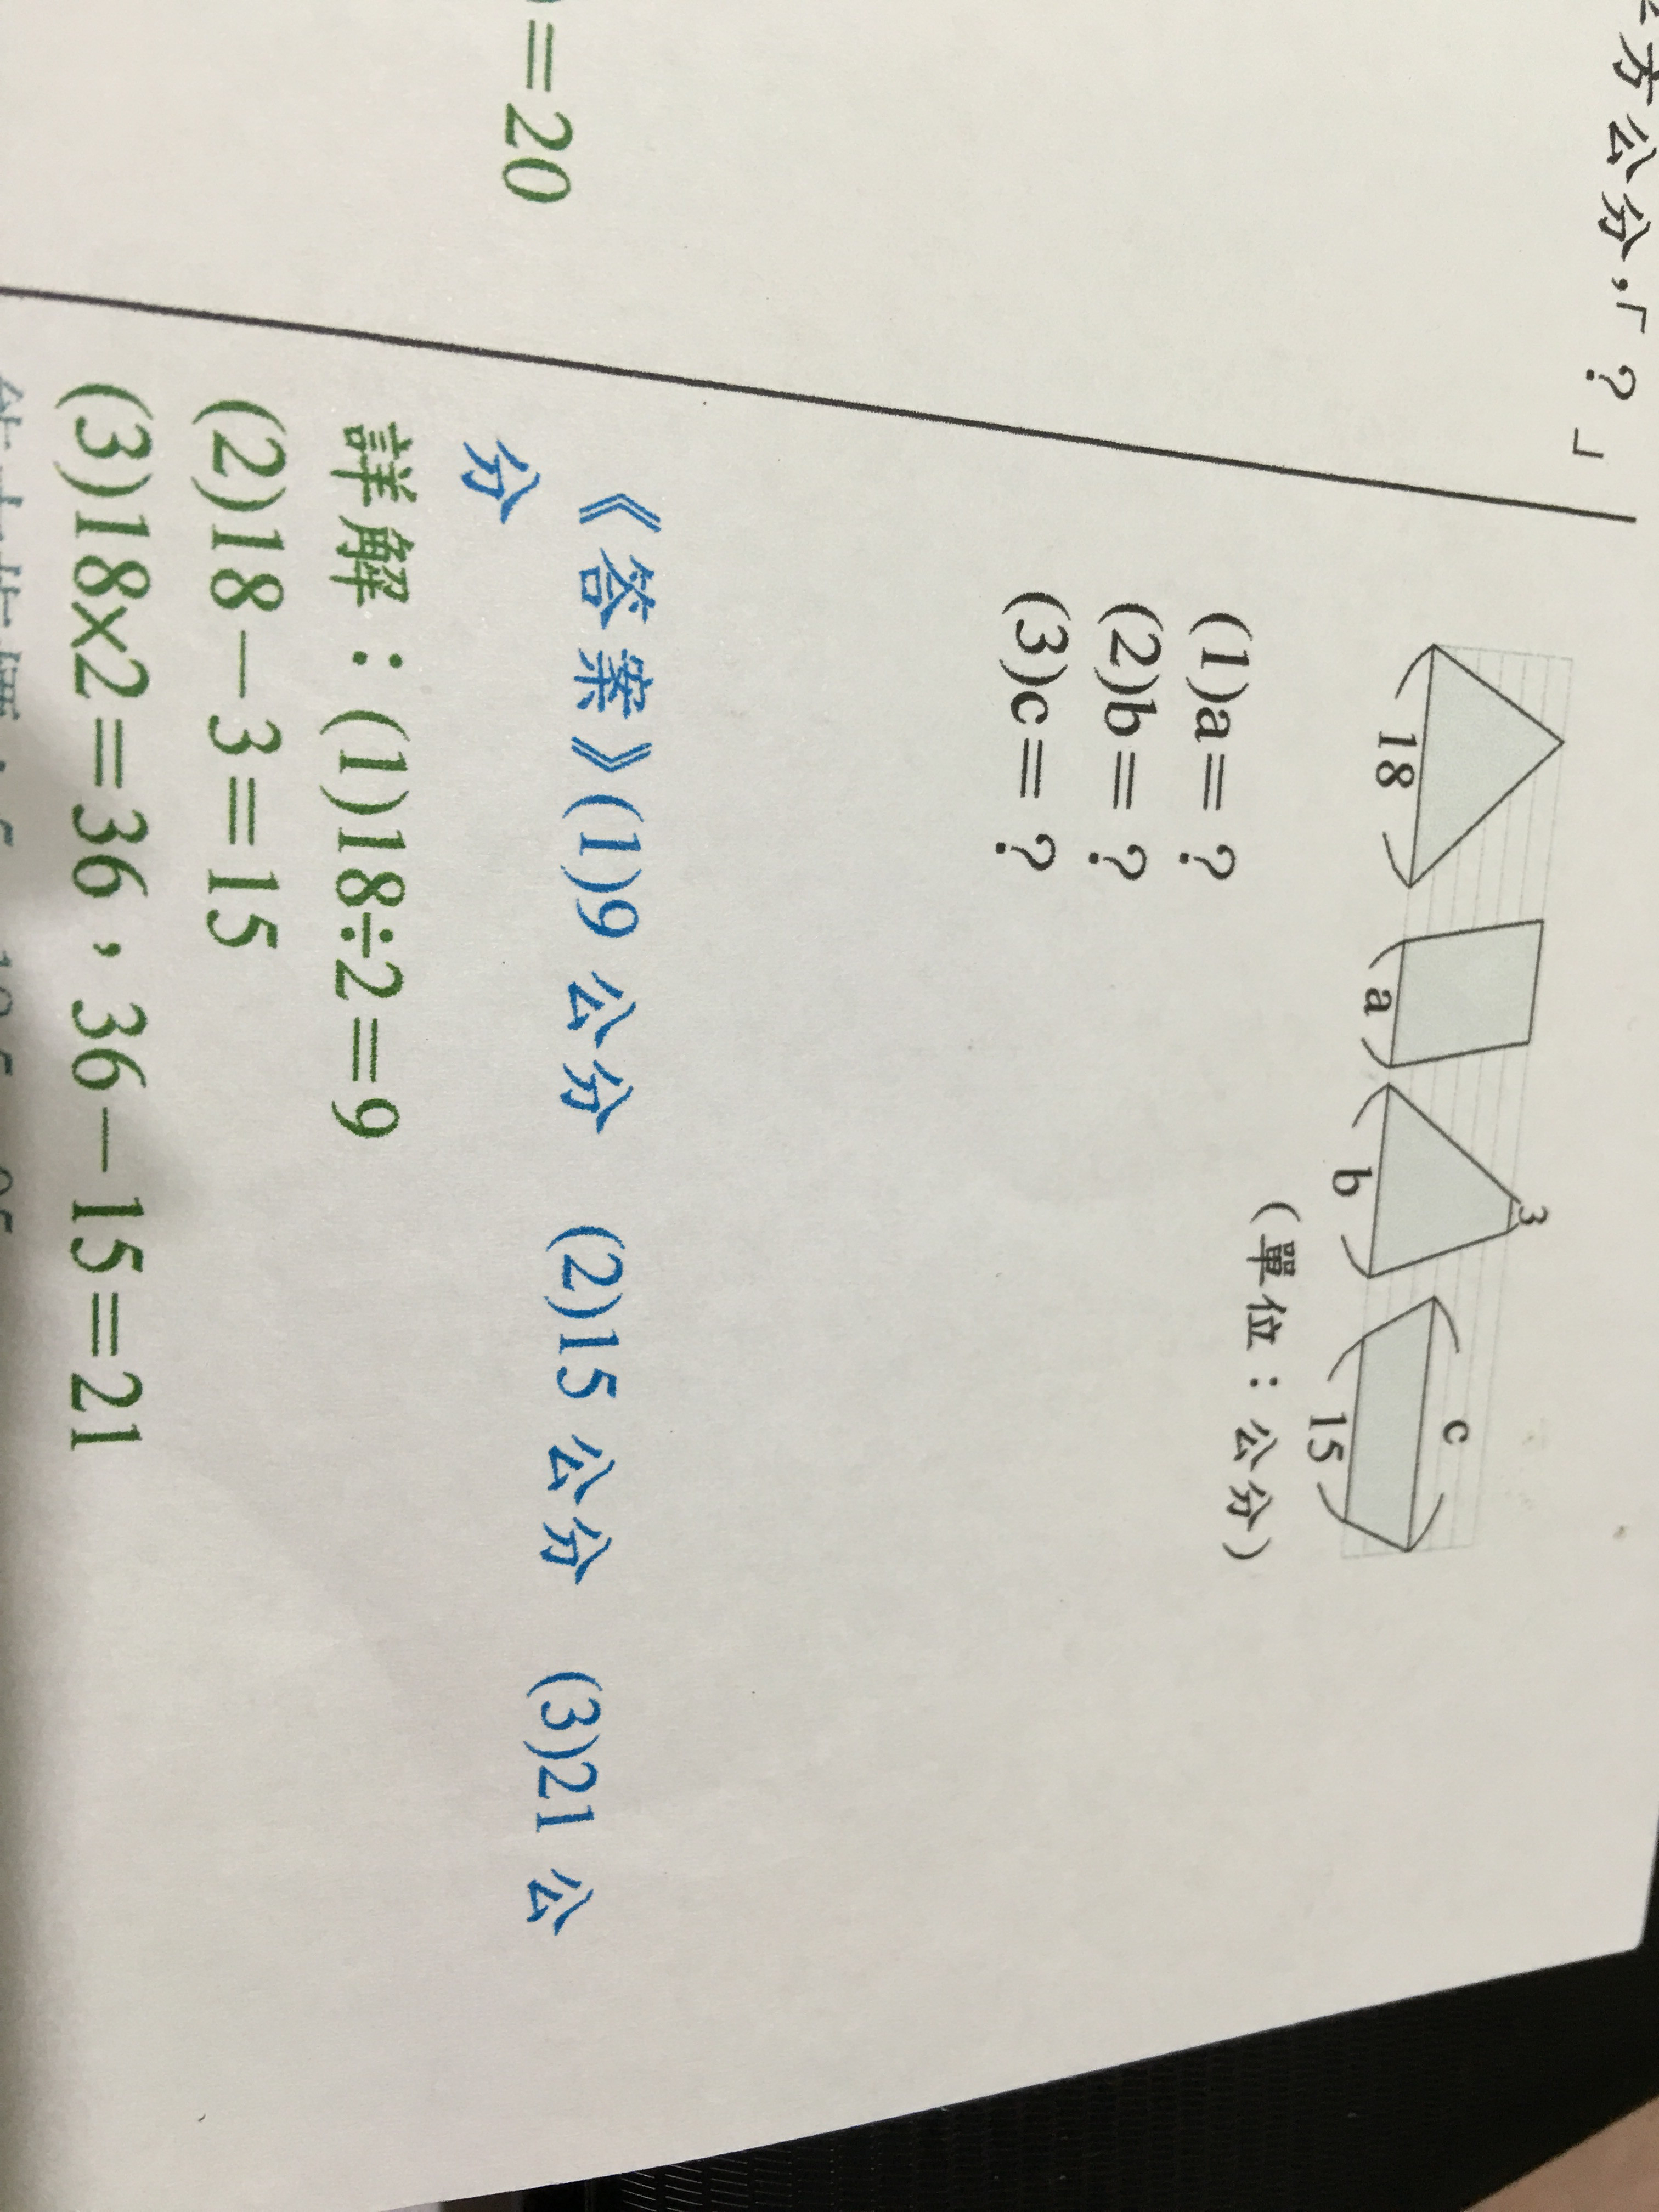 方公分，「？」
＝20
18
a
b
3
c
15
(單位：公分)
(1)a＝？
(2)b＝？
(3)c＝？
《答案》(1)9 公分 (2)15 公分 (3)21 公
分
詳解：(1)18÷2＝9
(2)18－3＝15
(3)18×2＝36，36－15＝21